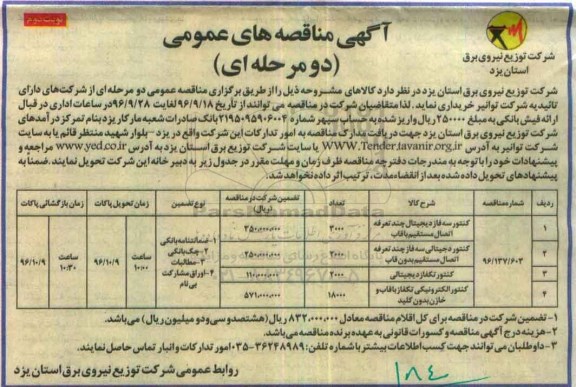 نوبت دوم
آگهی مناقصه های عمومی
(دو مرحله ای)
شرکت توزیع نیروی برق
استان یزد
شرکت توزیع نیروی برق استان یزد در نظر دارد کالاهای مشروحه ذیل را از طریق برگزاری مناقصه عمومی دو مرحله ای از شرکت‌های دارای
تائیدیه شرکت توانیر خریداری نماید. لذا متقاضیان شرکت در مناقصه می توانند از تأریخ ۹۶/۹/۱۸ لغایت ۹۶/۹/۲۸ در ساعات اداری در قبال
ارائه فیش بانکی به مبلغ ۲۵۰۰۰۰ ریال واریز شده به حساب سپهر شماره ۲۱۹۵۰۹۵۹۰۶۰۰۴ بانک صادرات شعبه مارکار یزد بنام تمرکز درآمدهای
شرکت توزیع نیروی برق استان یزد جهت دریافت مدارک مناقصه به امور تدارکات این شرکت واقع در یزد - بلوار شهید منتظر قائم یا به سایت
شرکت توانیر به آدرس WWW.Tender.tavanir.org.ir یا سایت شرکت توزیع برق استان یزد به آدرس www.yed.co.ir مراجعه و
پیشنهادات خود را با توجه به مندرجات دفترچه مناقصه ظرف زمان و مهلت مقرر در جدول زیر به دبیر خانه این شرکت تحویل نمایند. ضمنا به
پیشنهادهای تحویل داده شده بعد از انقضاء مدت، ترتیب اثر داده نخواهد شد:
ردیف شماره مناقصه شرح کالا تعداد تضمین شرکت در مناقصه (ریال) نوع تضمین زمان تحویل پاکات زمان بازگشائی پاکات
۱ کنتور سه فاز دیجیتال چند تعرفه اتصال مستقیم با قاب ۳۰۰۰ ۳۵۰/۰۰۰/۰۰۰
۲ کنتور دیجیتالی سه فاز چند تعرفه اتصال مستقیم بدون قاب ۲۵۰/۰۰۰/۰۰۰
۳ کنتور تکفاز دیجیتالی ۲۰۰۰ ۱۱۰/۰۰۰/۰۰۰
۴ کنتور الکترونیکی تکفاز با قاب و خازن بدون کلید ۱۸۰۰۰ ۵۷۱/۰۰۰/۰۰۰
۹۶/۱۳۷/۶۰۳
۱- ضمانتنامه بانکی
۲- چک بانکی
۳- مطالبات
۴- اوراق مشارکت بی نام
ساعت ۱۰:۰۰ ۹۶/۱۰/۹
ساعت ۱۰:۳۰ ۹۶/۱۰/۹
۱- تضمین شرکت در مناقصه برای کل اقلام مناقصه معادل ۸۳۲/۰۰۰/۰۰۰ ریال (هشتصد و سی و دو میلیون ریال) می باشد.
۲- هزینه درج آگهی مناقصه و کسورات قانونی به عهده برنده مناقصه می باشد.
۳- داوطلبان می توانند جهت کسب اطلاعات بیشتر با شماره تلفن: ۳۶۲۴۸۹۸۹-۰۳۵ امور تدارکات و انبار تماس حاصل نمایند.
روابط عمومی شرکت توزیع نیروی برق استان یزد
۱۸۴